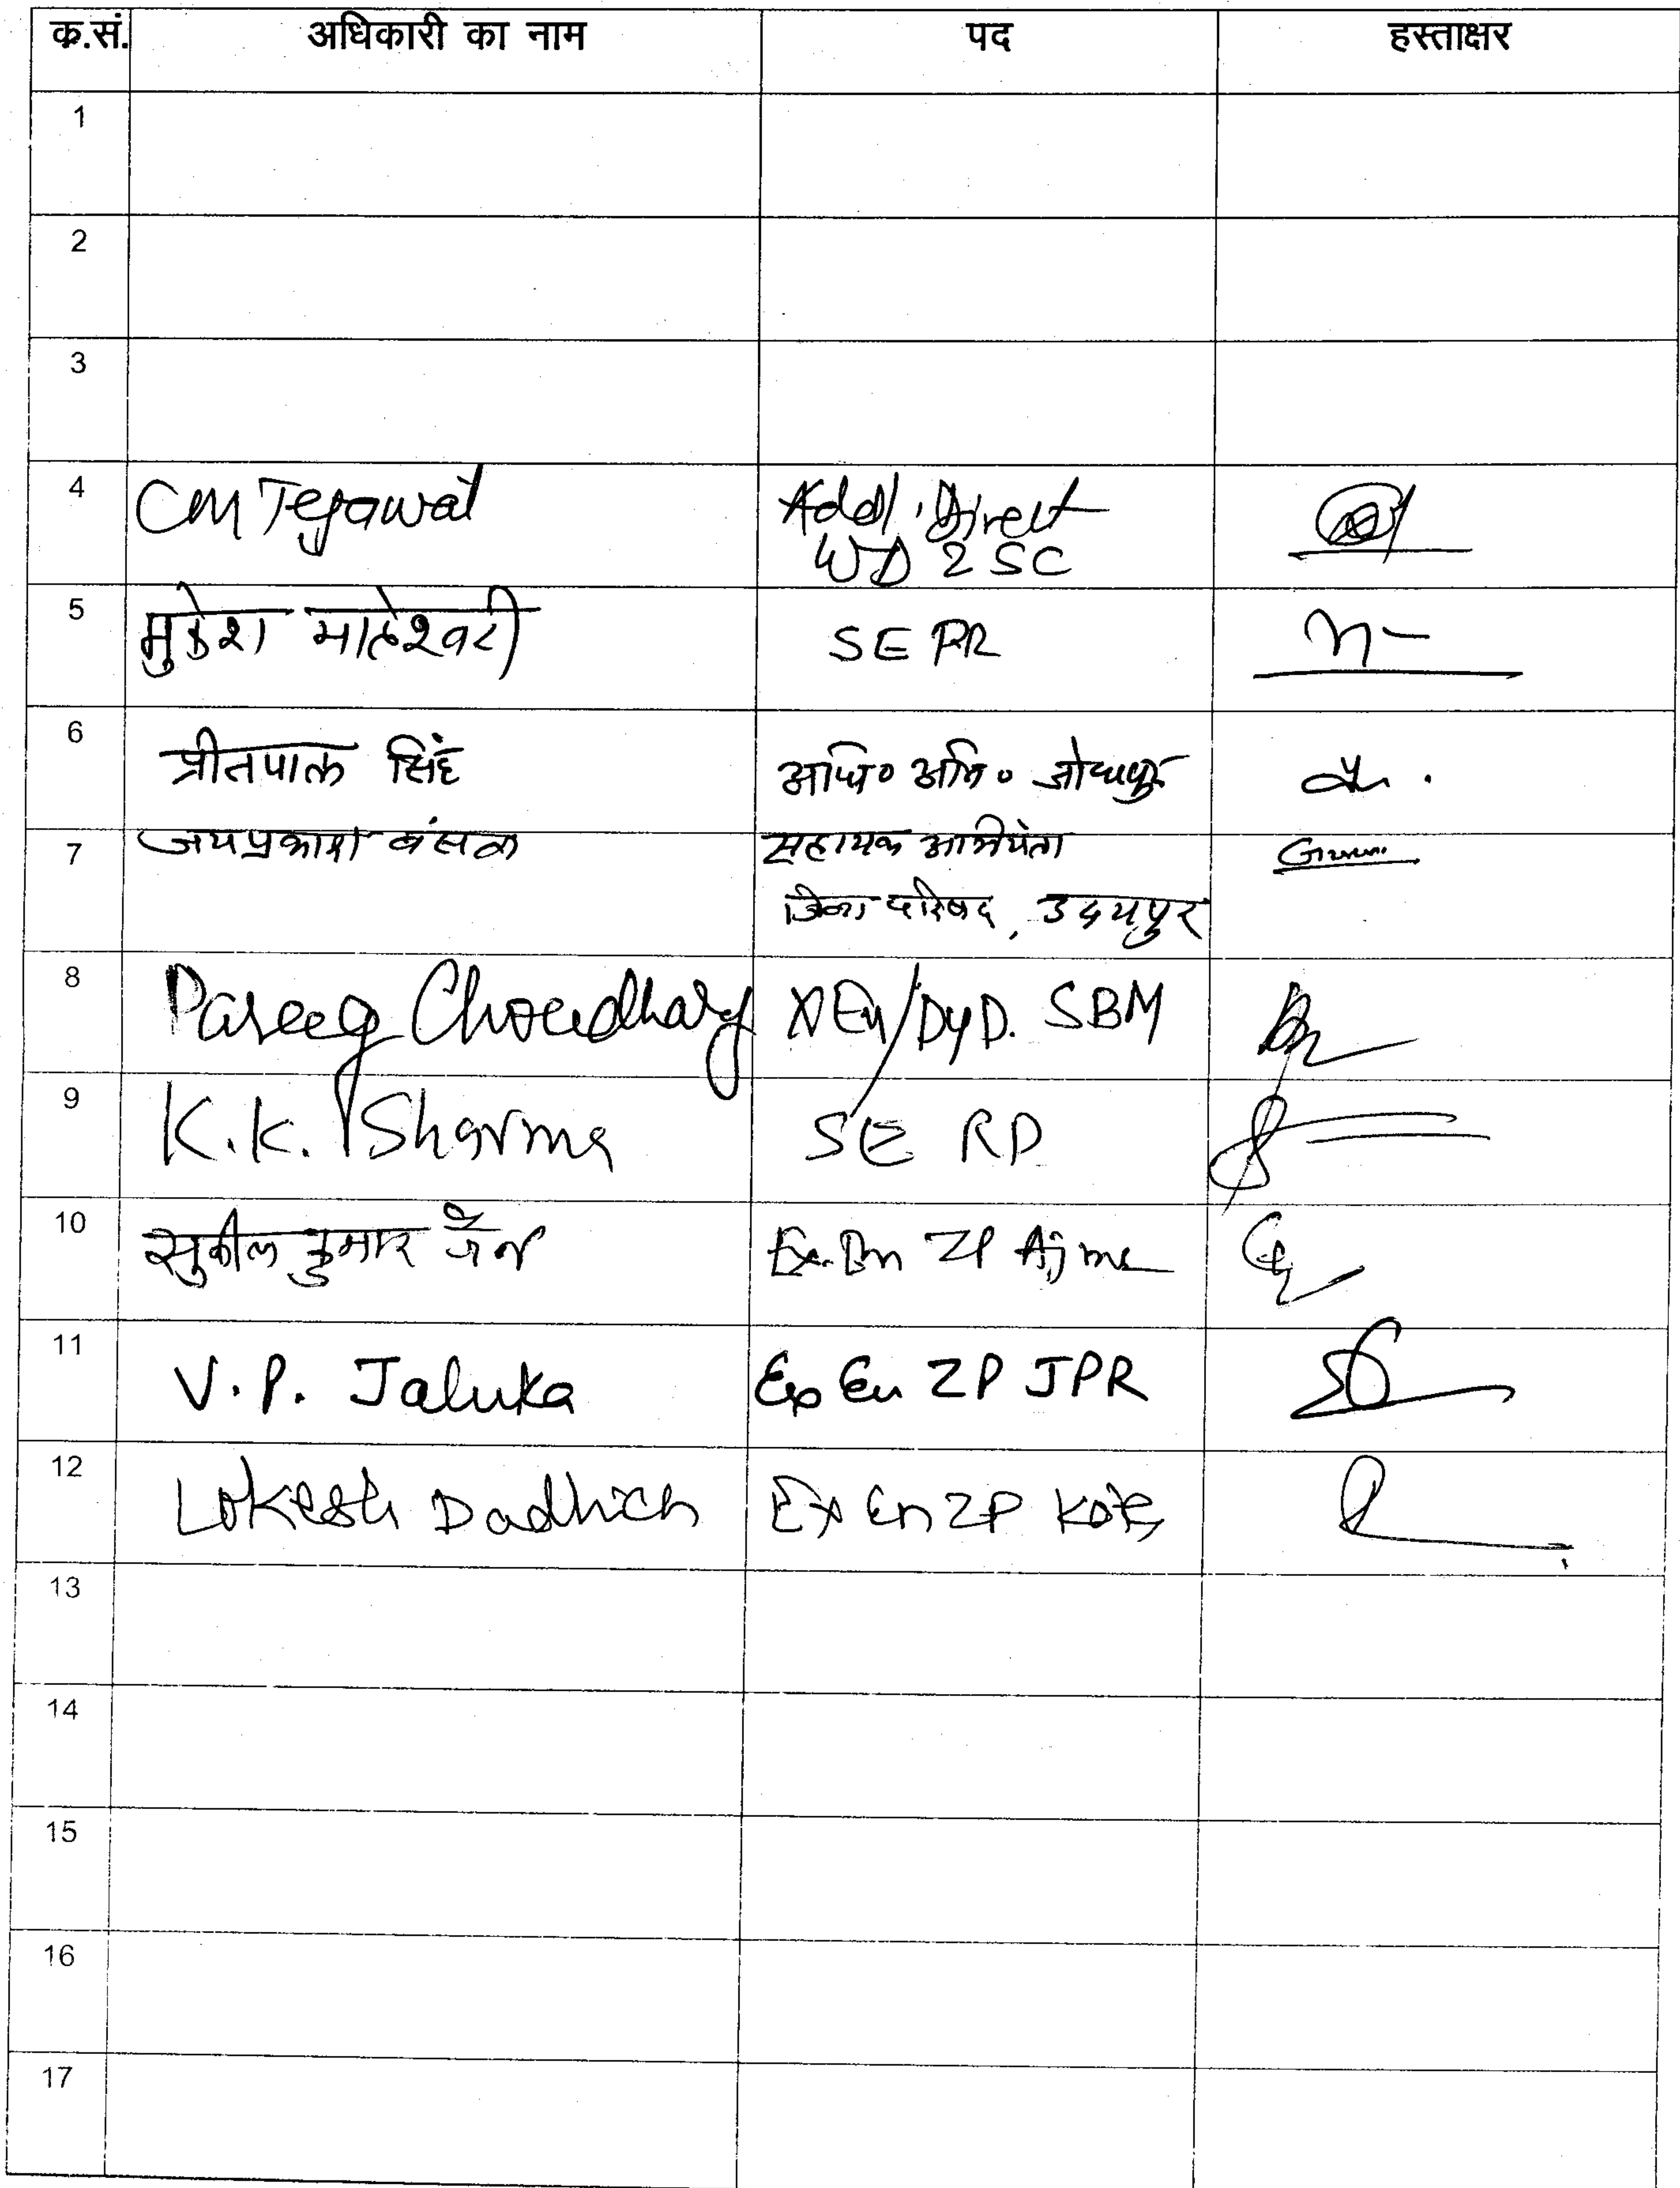 क.सं. अधिकारी का नाम पद हस्ताक्षर
1
2
3
4 CM Tejawat Addl. Direct
WD 2 SC
5 मुकेश माहेश्वरी SE PR
6 प्रीतपाल सिंह अधि० अभि० जोधपुर
7 जयप्रकाश बंसल सहायक अभियंता
जिला परिषद, उदयपुर
8 Pareeg Choudhary XEn/DyD. SBM
9 K.K. Sharma SE RD
10 सुशील कुमार जैन Ex.En ZP Ajme
11 V.P. Jaluka Ex En ZP JPR
12 Lokesh Dadhich Ex En ZP Kota
13
14
15
16
17